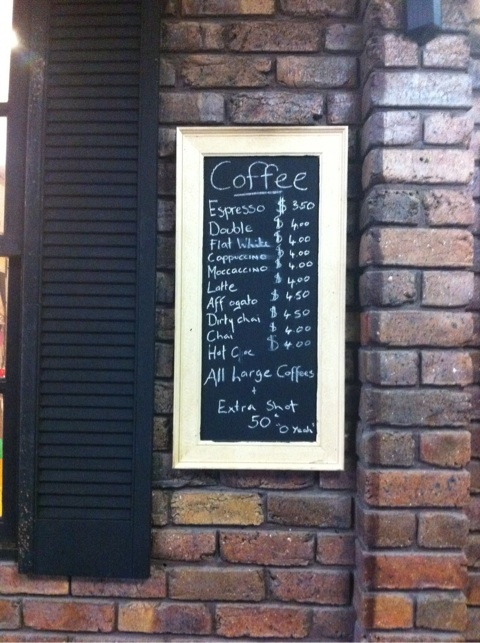 Coffee
Espresso $ 3.50
Double $ 4.00
Flat White $ 4.00
Cappuccino $ 4.00
Moccaccino $ 4.00
Latte $ 4.00
Affogato $ 4.50
Dirty chai $ 4.50
Chai $ 4.00
Hot $ 4.00
All Large Coffees
+
Extra Shot
50¢ "O Yeah"